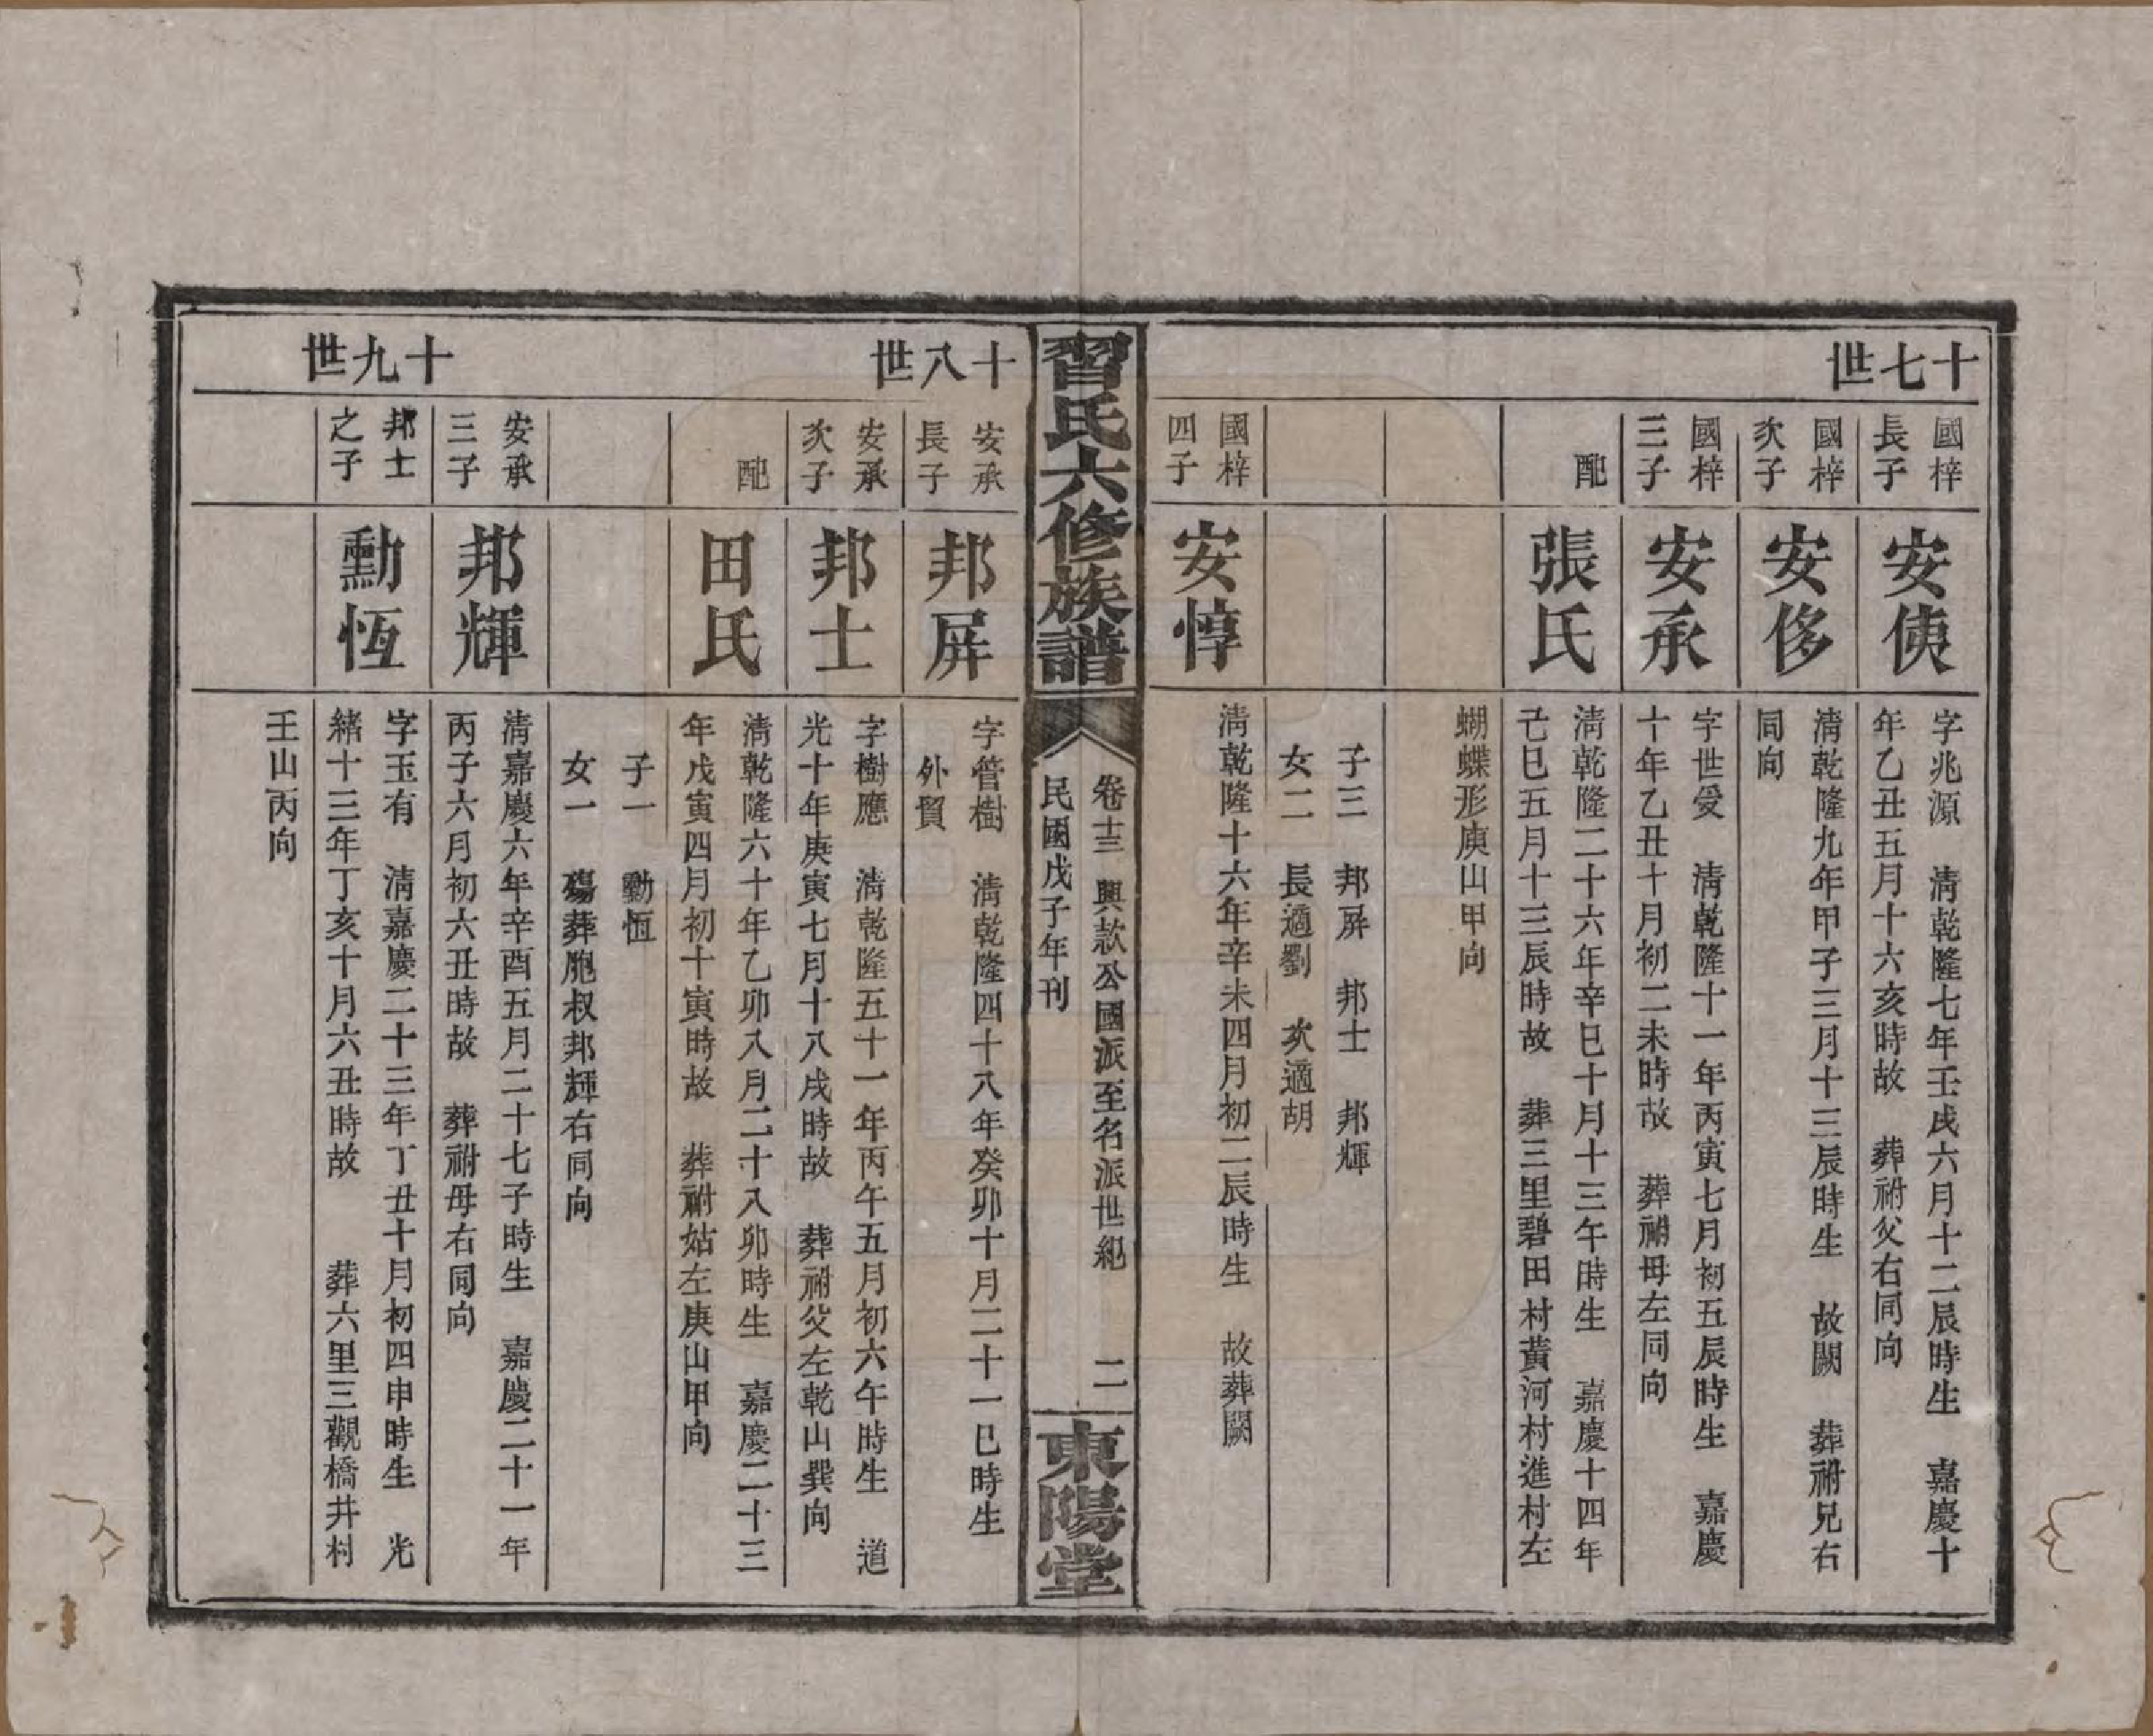 十七世
國梓
長子
安㑥
字兆源　清乾隆七年壬戌六月十二辰時生　嘉慶十
年乙丑五月十六亥時故　葬祔父右同向
國梓
次子
安侈
清乾隆九年甲子三月十三辰時生　故闕　葬祔兄右
同向
國梓
三子
安承
字世爰　清乾隆十一年丙寅七月初五辰時生　嘉慶
十年乙丑十月初二未時故　葬祔母左同向
配
張氏
清乾隆二十六年辛巳十月十三午時生　嘉慶十四年
己巳五月十三辰時故　葬三里碧田村黃河村進村左
蝴蝶形庚山甲向
子三　邦屏　邦士　邦輝
女二　長適劉　次適胡
國梓
四子
安惇
清乾隆十六年辛未四月初二辰時生　故葬闕
習氏六修族譜
卷十三　興款公國派至名派世紀　二
民國戊子年刊
東陽堂
十八世
安承
長子
邦屏
字管樹　清乾隆四十八年癸卯十月二十一巳時生
外貿
安承
次子
邦士
字樹應　清乾隆五十一年丙午五月初六午時生　道
光十年庚寅七月十八戌時故　葬祔父左乾山巽向
配
田氏
清乾隆六十年乙卯八月二十八卯時生　嘉慶二十三
年戊寅四月初十寅時故　葬祔姑左庚山甲向
子一　勳恆
女一　殤葬胞叔邦輝右同向
安承
三子
邦輝
清嘉慶六年辛酉五月二十七子時生　嘉慶二十一年
丙子六月初六丑時故　葬祔母右同向
十九世
邦士
之子
勳恆
字玉有　清嘉慶二十三年丁丑十月初四申時生　光
緒十三年丁亥十月六丑時故　葬六里三觀橋井村
壬山丙向